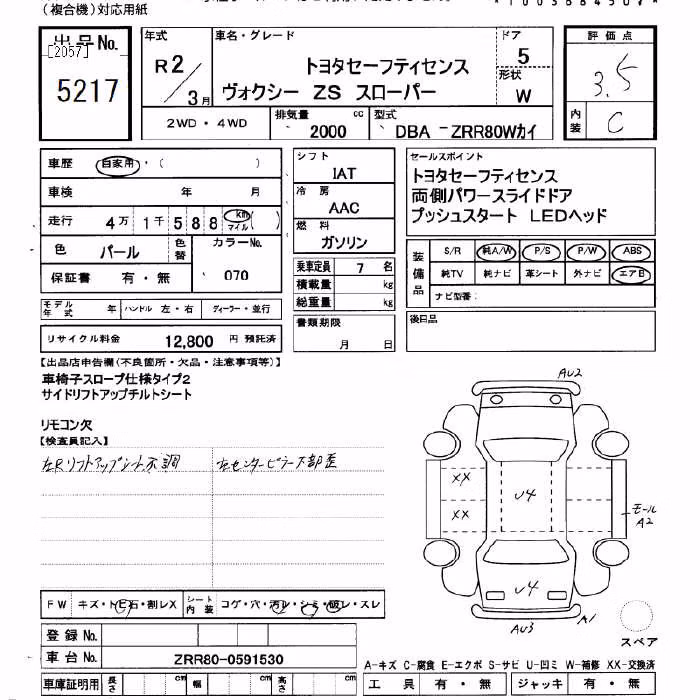 (複合機)対応用紙
出品No.
[2057]
5217
年式
R2/3月
車名・グレード
トヨタセーフティセンス
ヴォクシー ZS スローパー
ドア
5
形状
W
2WD・4WD
排気量 2000 cc
型式 DBA-ZRR80Wカイ
評価点
3.5
内装
C
車歴 自家用・( )
車検 年 月
走行 4万1千588 km マイル ( )
色 パール 色替
カラーNo.
070
保証書 有・無
モデル年式 年 ハンドル 左・右 ディーラー・並行
リサイクル料金 12,800 円 預託済
シフト
IAT
冷房
AAC
燃料
ガソリン
乗車定員 7 名
積載量 kg
総重量 kg
書類期限
月 日
セールスポイント
トヨタセーフティセンス
両側パワースライドドア
プッシュスタート LEDヘッド
装備品
S/R 純A/W P/S P/W ABS
純TV 純ナビ 革シート 外ナビ エアB
ナビ型番:
後日品
【出品店申告欄(不良箇所・欠品・注意事項等)】
車椅子スロープ仕様タイプ2
サイドリフトアップチルトシート
リモコン欠
【検査員記入】
左Rリフトアップシート不調
左センターピラー下部歪
AU2
XX
XX
U4
U4
モール
A2
AU3
A1
スペア
FW キズ・トビ石・割レX
シート内装 コゲ・穴・汚レ・シミ・破レ・スレ
登録No.
車台No. ZRR80-0591530
車庫証明用 長さ cm 幅 cm 高さ cm
A-キズ C-腐食 E-エクボ S-サビ U-凹ミ W-補修 XX-交換済
工具 有・無 ジャッキ 有・無